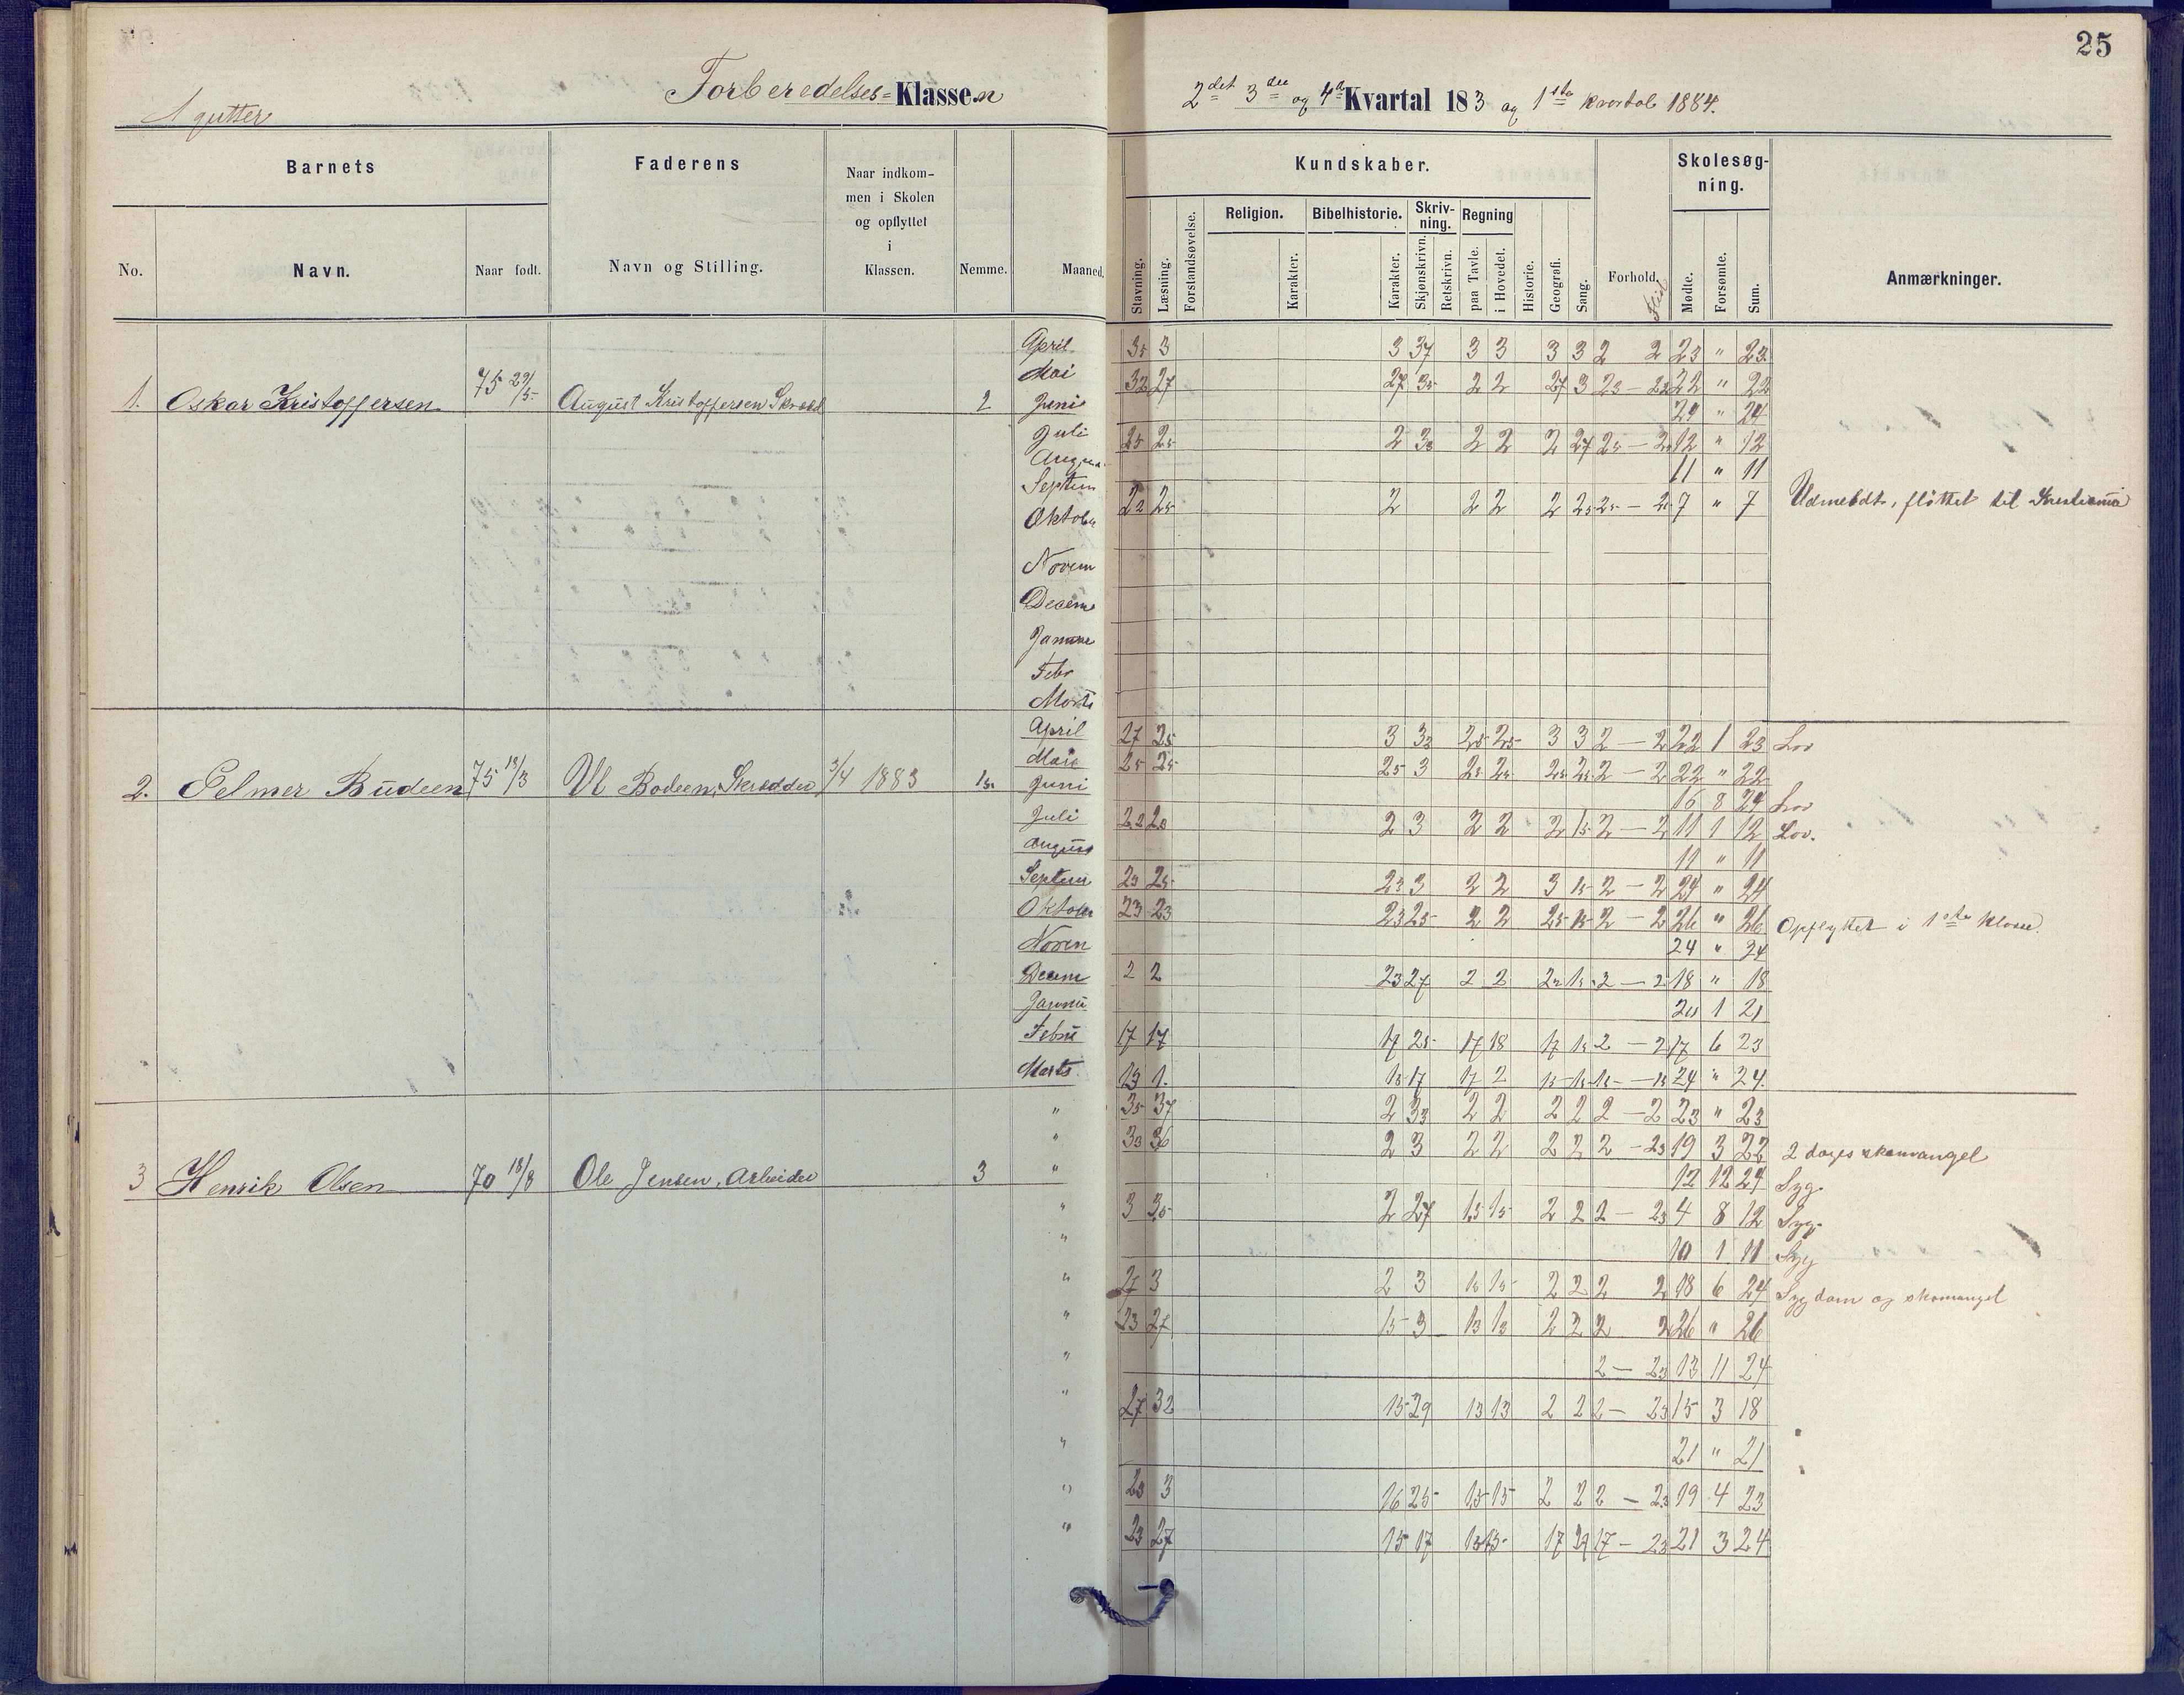 25
1 gutter
Forberedelses-Klassen
2det 3die og 4de Kvartal 183 og 1ste kvartal 1884.
Barnets
Faderens
Naar indkom-
men i Skolen
og opflyttet
i
Klassen.
Nemme.
Maaned.
No.
Navn.
Naar født.
Navn og Stilling.
Kundskaber.
Skolesøg-
ning.
Religion.
Bibelhistorie.
Skriv-
ning.
Regning
Stavning.
Læsning.
Forstandsøvelse.
Karakter.
Karakter.
Skjønskrivn.
Retskrivn.
paa Tavle.
i Hovedet.
Historie.
Geografi.
Sang.
Forhold.
Flid
Mødte.
Forsømte.
Sum.
Anmærkninger.
1. Oskar Kristoffersen 75 29/5 August Kristoffersen 2
April 35 3 3 37 3 3 3 3 2 2 23 " 23
Mai 32 27 27 35 2 2 27 3 23 - 23 22 " 22
Juni 24 " 24
Juli 25 25 2 33 2 2 2 27 25 - 2 12 " 12
August 11 " 11
Septem 22 25 2 2 2 2 25 25 - 2 7 " 7 Udmeldt, fløttet til Kristiania
Oktober
Novem
Decem
Januar
Febr
Marts
2. Pelmer Budeen 75 18/3 Bodeen, Skrædder 3/4 1883
April 27 25 3 33 25 25 3 3 2 - 2 22 1 23 Lov
Mai 25 25 25 3 25 25 25 25 2 - 2 22 " 22
Juni 16 8 24 Lov
Juli 22 23 2 3 2 2 2 15 2 - 2 11 1 12 Lov.
August 11 " 11
Septem 23 25 23 3 2 2 3 15 2 - 2 24 " 24
Oktober 23 23 23 25 2 2 25 15 2 - 2 26 " 26 Opflyttet i 1ste klasse.
Novem 24 " 24
Decem 2 2 23 27 2 2 2 - 2 18 " 18
Januar 20 1 21
Febru 17 17 17 25 17 18 17 15 2 - 2 17 6 23
Marts 13 1. 13 17 17 2 24 " 24.
3 Henrik Olsen 70 18/8 Ole Jensen, Arbeider 3
" 35 37 2 33 2 2 2 2 2 - 2 23 " 23
" 33 36 2 3 2 2 2 2 2 - 23 19 3 22 2 dages skomangel
" 12 12 24 Syg.
" 3 35 2 27 15 15 2 2 2 - 23 4 8 12 Syg.
" 10 1 11 Syg
" 27 3 2 3 15 15 2 2 2 2 18 6 24 Sygdom og skomangel
" 23 27 15 3 13 13 2 2 2 2 26 " 26
" 2 - 23 13 11 24
" 27 32 15 29 13 13 2 2 2 - 23 15 3 18
" 21 " 21
" 23 3 16 25 15 15 2 2 2 - 23 19 4 23
" 23 27 15 17 13 15 17 17 - 23 21 3 24